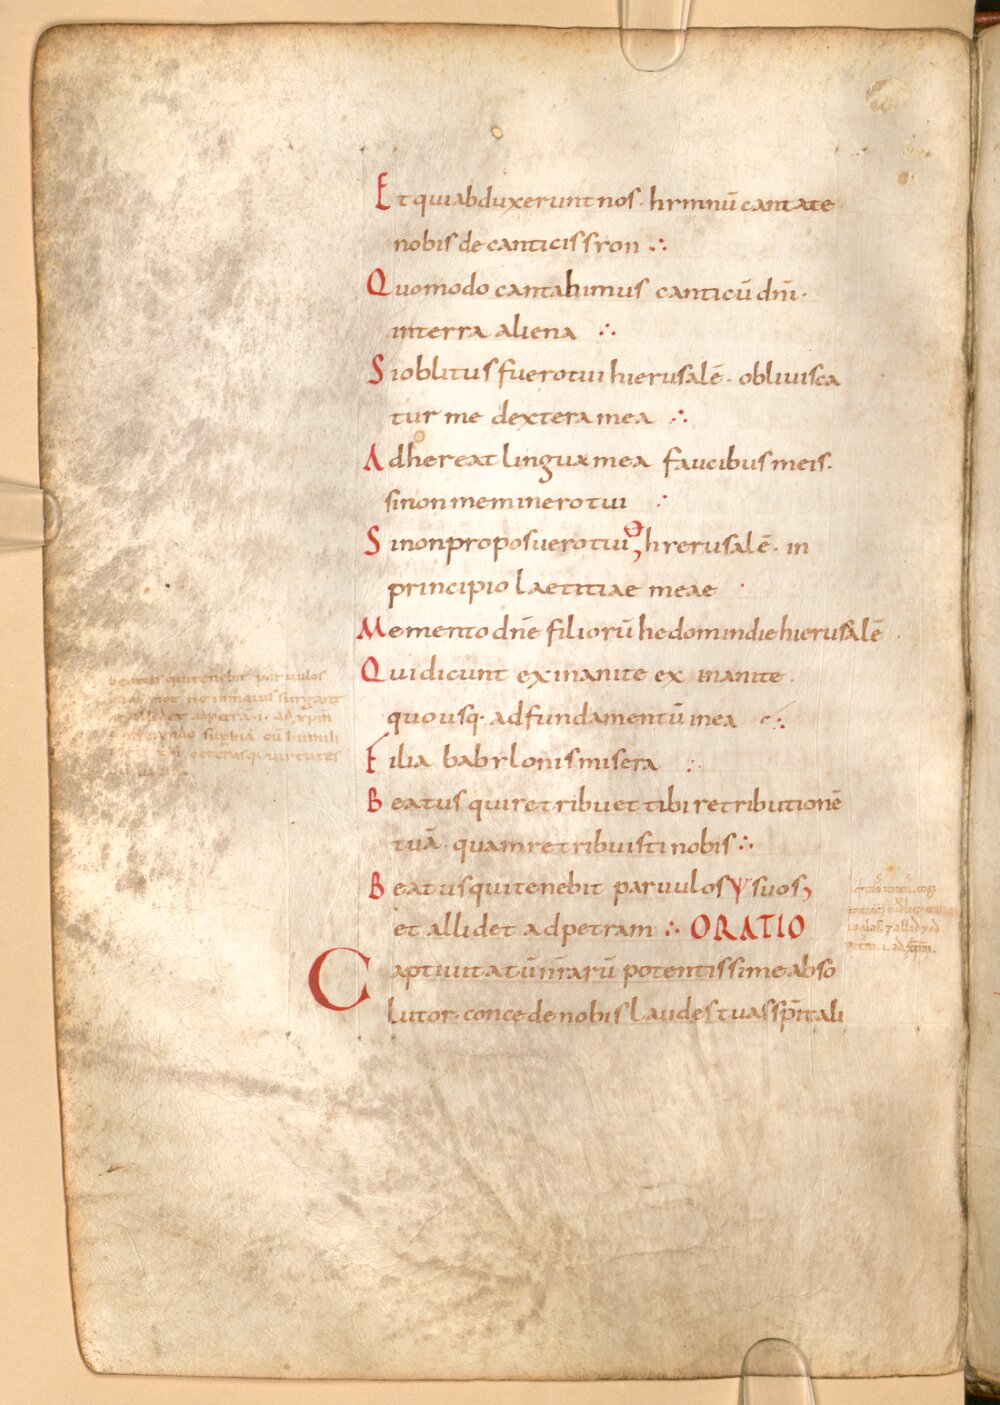 Et qui abduxerunt nos · hymnū cantate
nobis de canticis syon ∴
Quomodo cantabimus canticū dn̄i ·
in terra aliena ∴
Si oblitus fuero tui hierusalē · obliuisca
tur me dextera mea ∴
Adhereat lingua mea faucibus meis ·
si non meminero tui ∴
Si non proposuero tui hyerusalē · in
principio laetitiae meae ·
Memento dn̄e filiorū hedom in die hierusalē
Qui dicunt exinanite exinanite ·
quousq· ad fundamentū in ea ∴
Filia babylonis misera ∴
Beatus qui retribuet tibi retributionē
tuā · quam retribuisti nobis ∴
Beatus qui tenebit paruulos ψ suos,
et allidet ad petram ∴ ORATIO
Captiuitatū nr̄arū potentissime abso
lutor · concede nobis laudes tuas sp̄itali
beatus qui tenebit paruulos